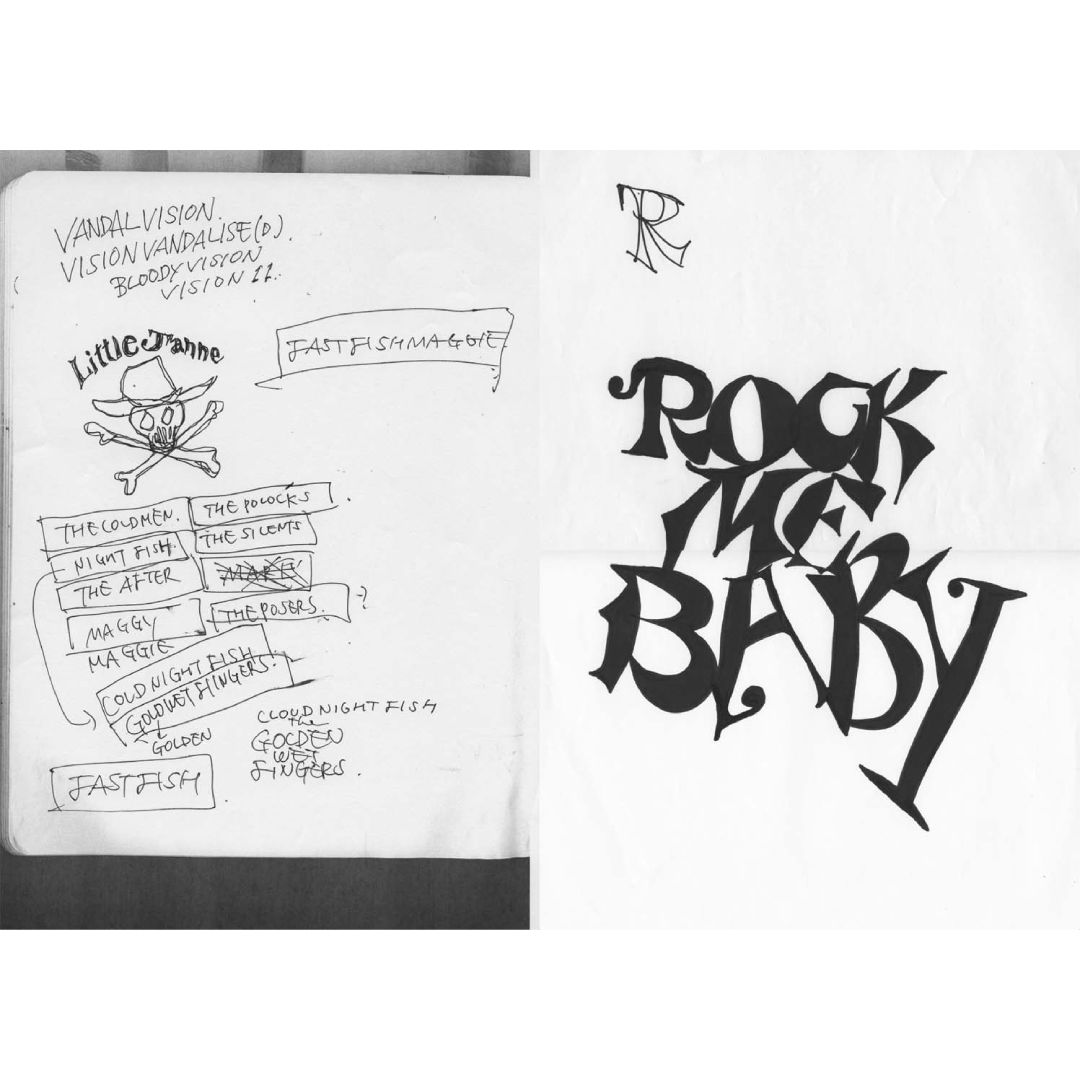 VANDALVISION.
VISIONVANDALISE(D).
BLOODYVISION
VISION 11.
Little Jeanne
FASTFISHMAGGIE
THE COLDMEN.
THE POLOCKS.
NIGHT FISH.
THE SILENTS
THE AFTER
MAGGY
THE POSERS. ?
MAGGIE
COLD NIGHT FISH
GOLDWET FINGERS.
GOLDEN
CLOUD NIGHT FISH
the
GOLDEN
WET
FINGERS.
FASTFISH
R
ROCK
ME
BABY